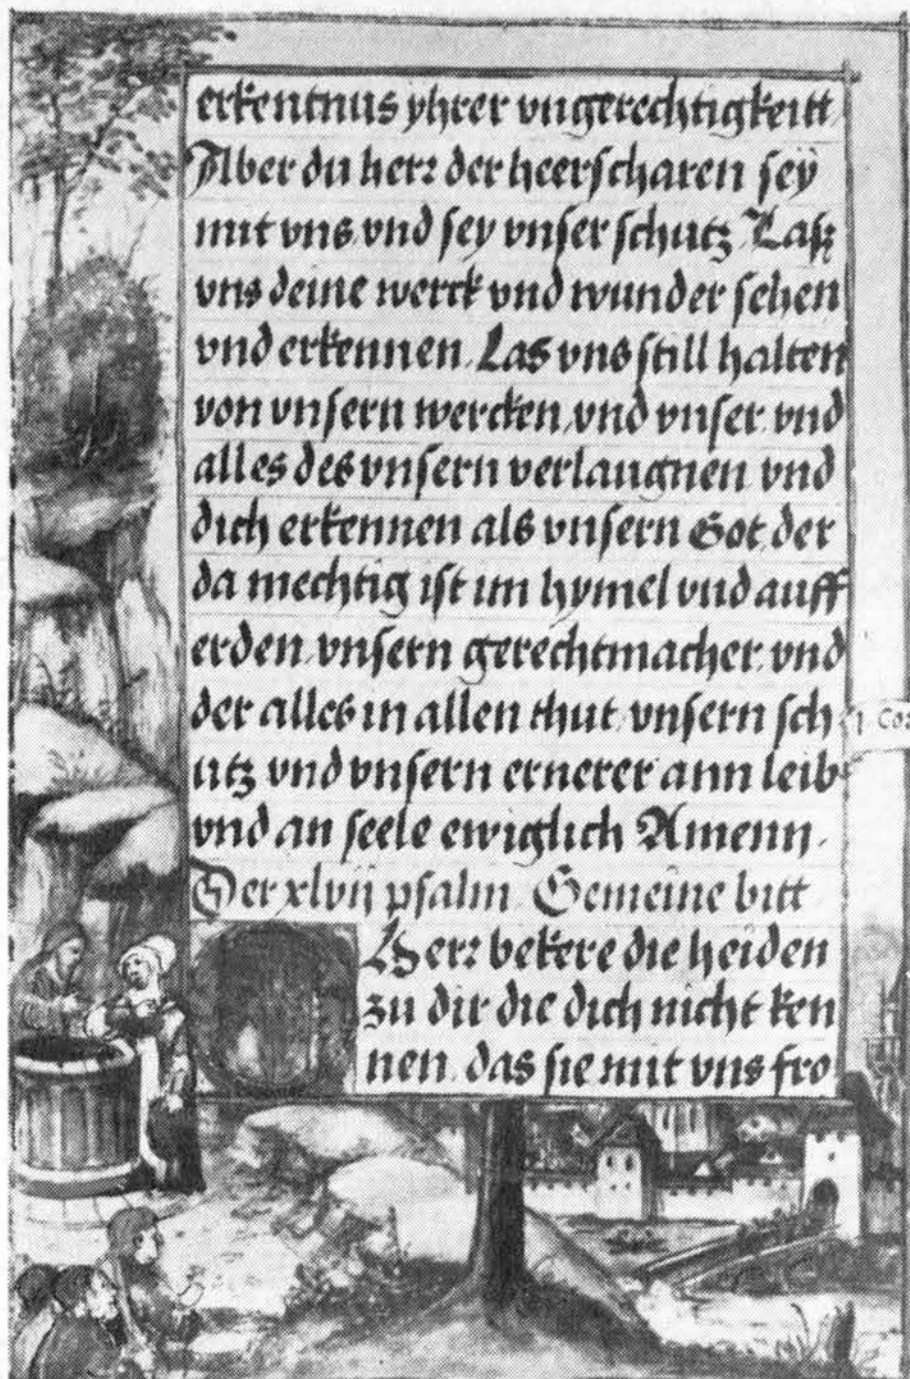 erkentnus yhrer vngerechtigkeitt
Aber du herr der heerscharen seÿ
mit vns. vnd sey vnser schutz. Lasz
vns deine werck vnd wunder sehen
vnd erkennen. Las vns still halten
von vnsern wercken, vnd vnser. vnd
alles des vnsern verlaugnen. vnd
dich erkennen als vnsern Got. der
da mechtig ist im hymel vnd auff
erden. vnsern gerechtmacher. vnd
der alles in allen thut. vnsern sch
utz vnd vnsern ernerer ann leib
vnd an seele ewiglich Amenn.
Der xlvij psalm. Gemeine bitt
Herr bekere die heiden
zu dir die dich nicht ken
nen. das sie mit vns fro